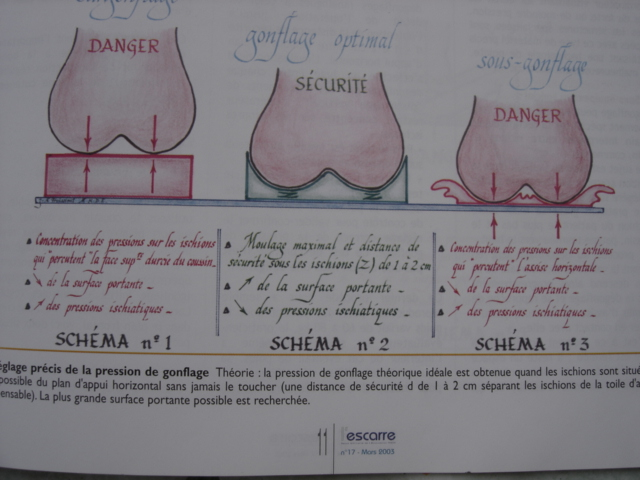 gonflage optimal
sous-gonflage
DANGER
SÉCURITÉ
DANGER
▲ Concentration des pressions sur les ischions
qui "percutent" la face supre durcie du coussin_
▲ ↘ de la surface portante _
▲ ↗ des pressions ischiatiques _
SCHÉMA nº 1
▲ Moulage maximal et distance de
sécurité sous les ischions (Z) de 1 à 2 cm
▲ ↗ de la surface portante _
▲ ↘ des pressions ischiatiques _
SCHÉMA nº 2
▲ Concentration des pressions sur les ischions
qui "percutent" l'assise horizontale _
▲ ↘ de la surface portante _
▲ ↗ des pressions ischiatiques _
SCHÉMA nº 3
églage précis de la pression de gonflage Théorie : la pression de gonflage théorique idéale est obtenue quand les ischions sont situé
possible du plan d'appui horizontal sans jamais le toucher (une distance de sécurité d de 1 à 2 cm séparant les ischions de la toile d'a
ensable). La plus grande surface portante possible est recherchée.
11
l'escarre
n°17 - Mars 2003